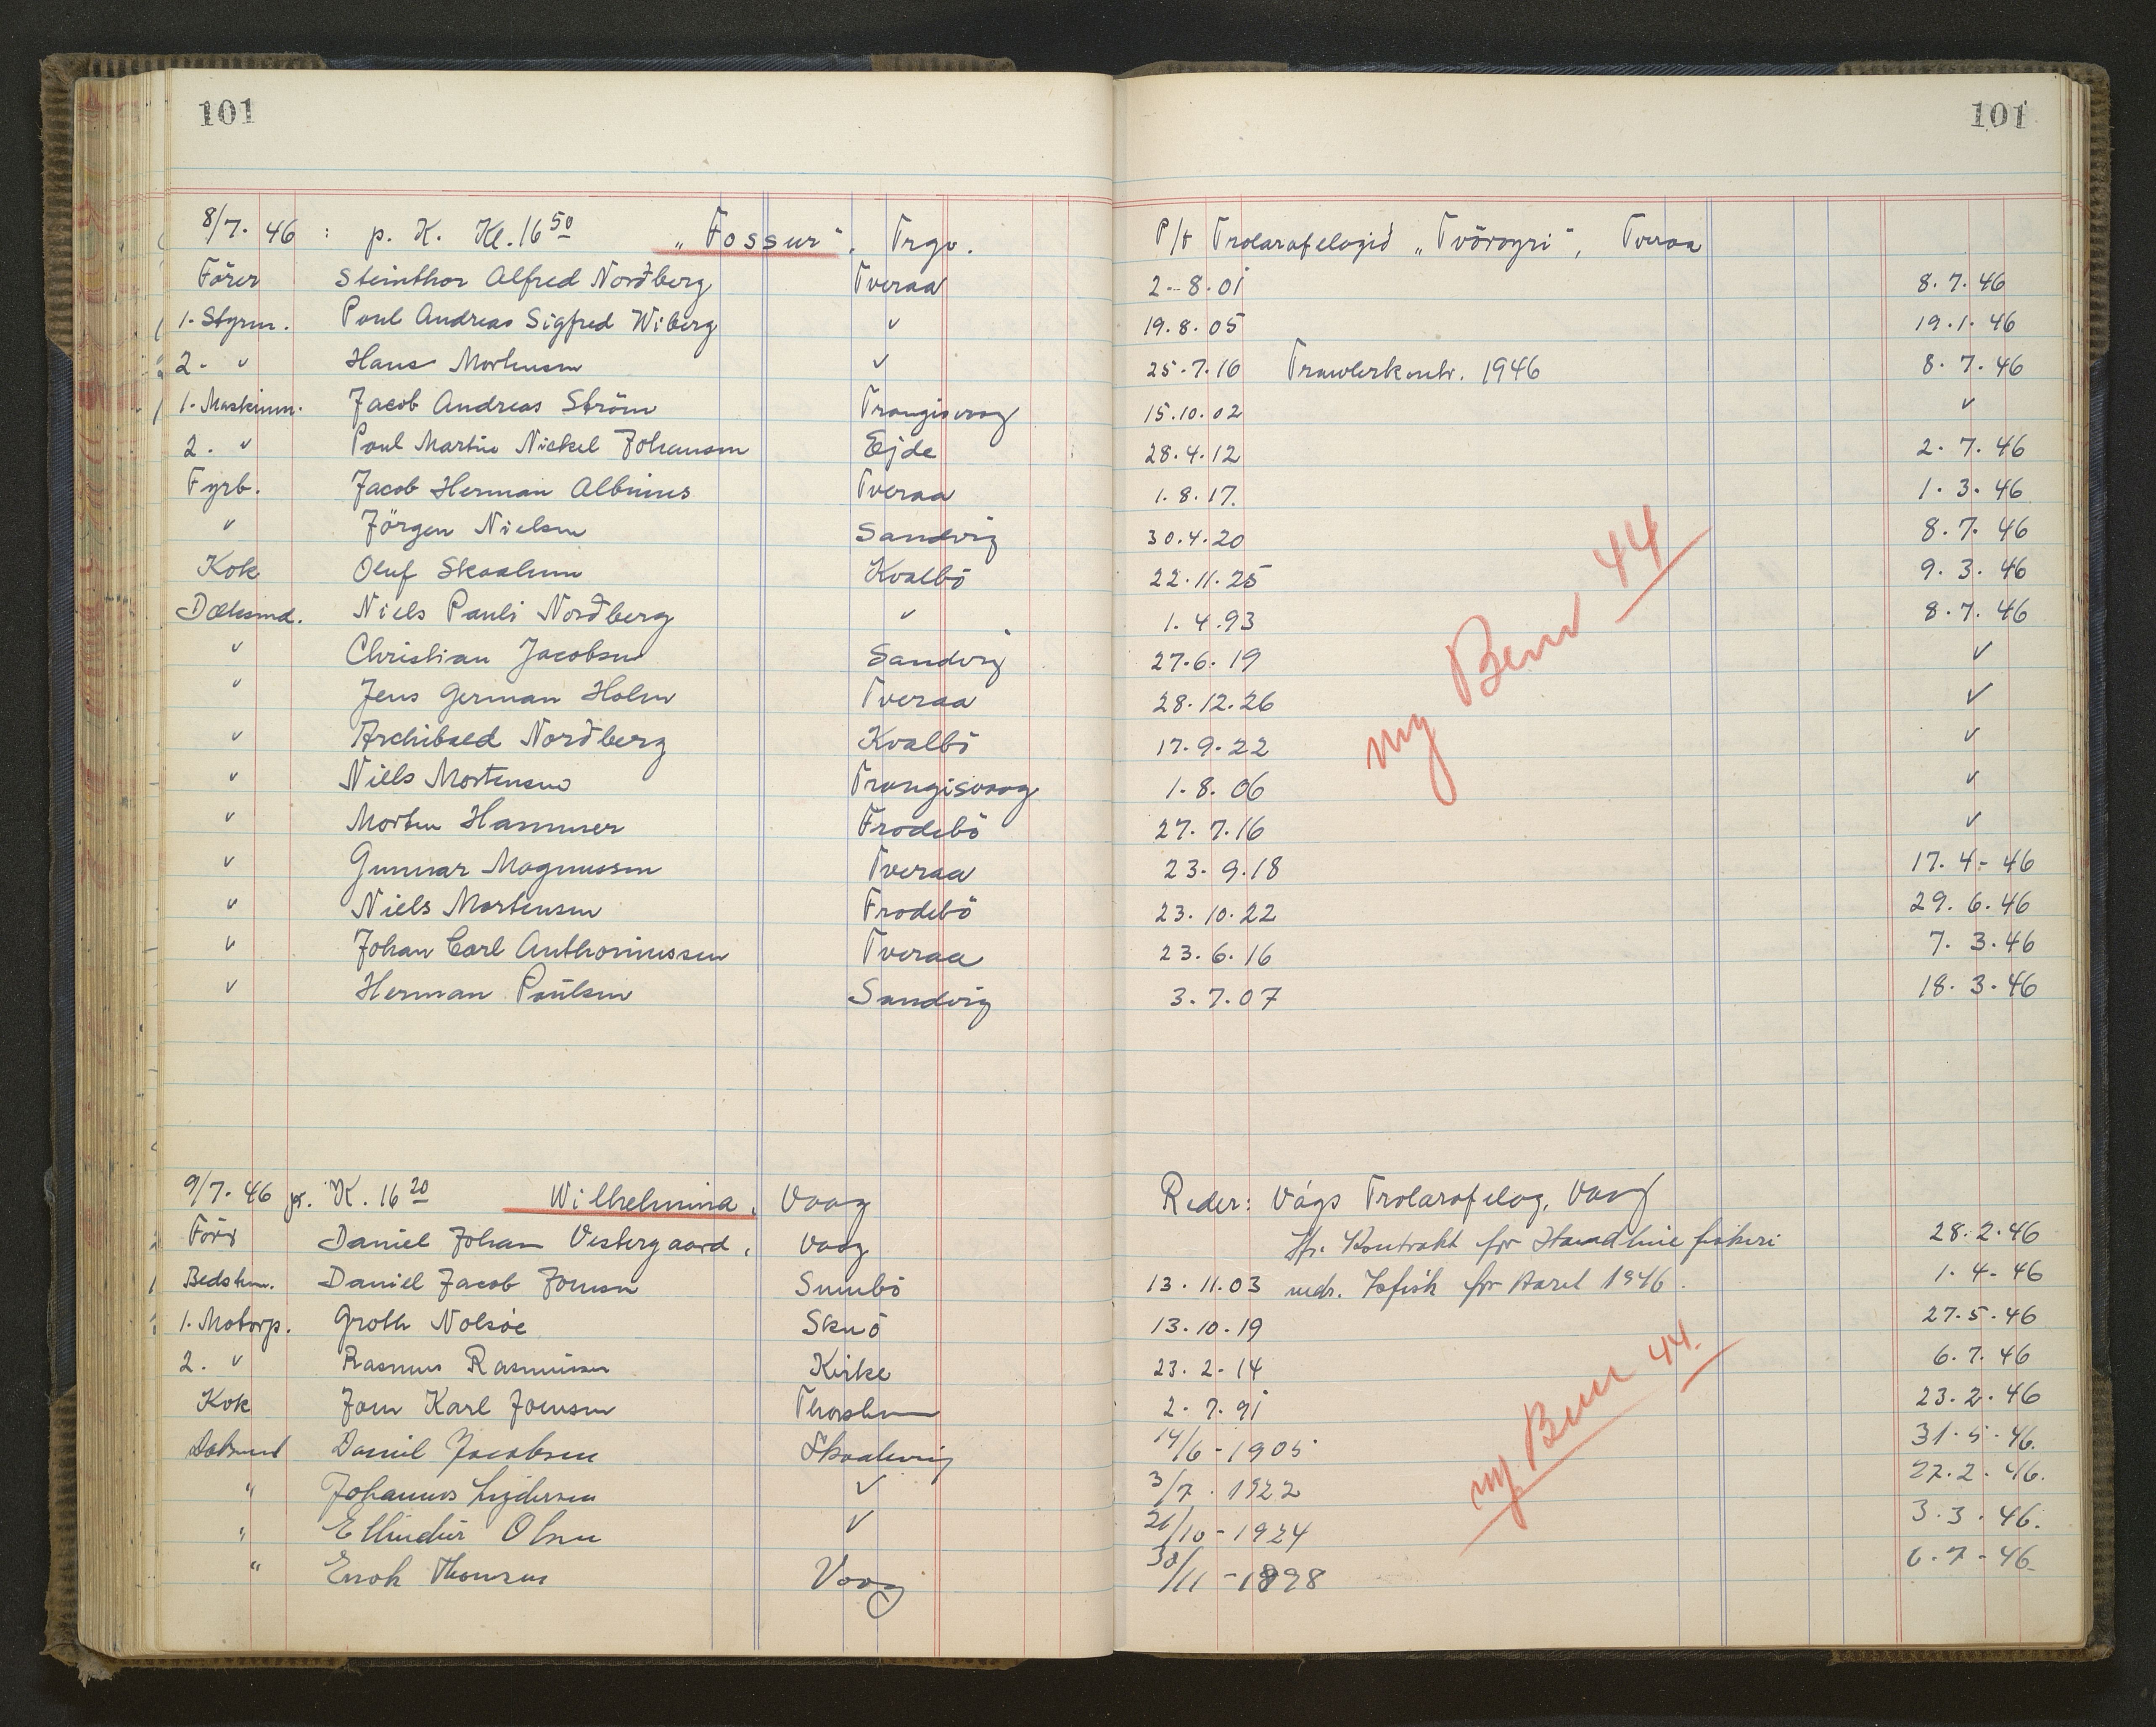 101
101
8/7. 46 : p. K. Kl. 16 50 „Fossur“. Trgv. P/f Trolarafelagid „Tvöroyri“, Tveraa
Förer Steinthor Alfred Nordberg Tveraa 2.-8.01 8.7.46
1. Styrm. Poul Andreas Sigfred Wiberg " 19.8.05 19.1.46
2. " Hans Mortensen " 25.7.16 Trawlerkontr. 1946 8.7.46
1. Maskinm. Jacob Andreas Ström Trangisvaag 15.10.02 "
2. " Poul Martin Nickel Johansen Ejde 28.4.12 2.7.46
Fyrb. Jacob Herman Albinus Tveraa 1.8.17. 1.3.46
" Jörgen Nielsen Sandvig 30.4.20 8.7.46
Kok Oluf Skaalum Kvalbö 22.11.25 9.3.46
Dæksmd. Niels Pauli Nordberg " 1.4.93 8.7.46
" Christian Jacobsen Sandvig 27.6.19 "
" Jens German Holm Tveraa 28.12.26 "
" Archibald Nordberg Kvalbö 17.9.22 "
" Niels Mortensen Trangisvaag 1.8.06 "
" Morten Hammer Frodebö 27.7.16 "
" Gunnar Magnussen Tveraa 23.9.18 17.4-46
" Niels Mortensen Frodebö 23.10.22 29.6.46
" Johan Carl Anthoniussen Tveraa 23.6.16 7.3.46
" Herman Poulsen Sandvig 3.7.07 18.3.46
my Bem 44
9/7. 46 p. K. 16 20 Wilhelmina, Vaag Reder: Vágs Trolarafelag, Vaag
Förer Daniel Johan Vestergaard, Vaag Kontrakt for Haandlinefiskeri 28.2.46
Bedstm. Daniel Jacob Joensen Sumbö 13.11.03 mdr. Isfisk for Aaret 1946. 1.4-46
1. Motorp. Groth Nolsøe Skuö 13.10.19 27.5.46
2. " Rasmus Rasmussen Kirke 23.2.14 6.7.46
Kok Joen Karl Joensen Thorshavn 2.7.91 23.2.46
Daniel Jacobsen Skaalevig 14/6-1905 31.5.46.
" Johannes " 3/7.1922 27.2.46.
" Ellindur Olsen " 21/10-1924 3.3.46.
" Enok Thomsen Vaag 30/11-1898 6.7-46
my Bem 44.